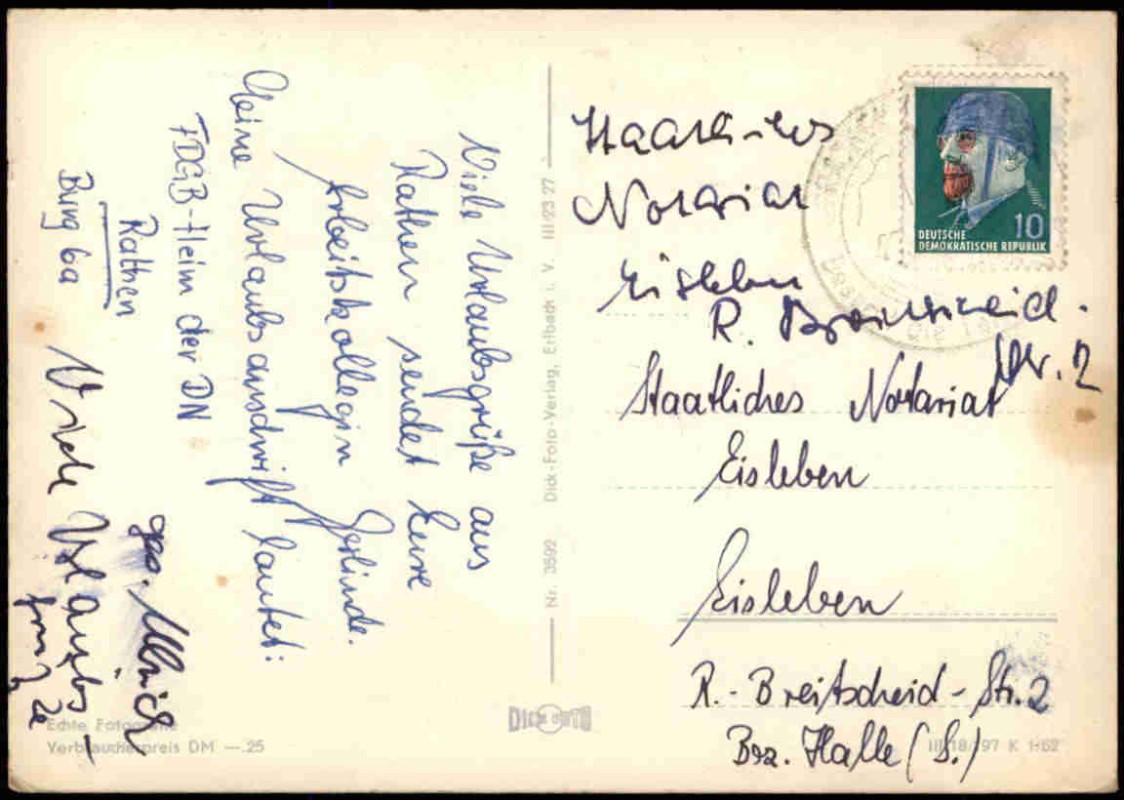 Viele Urlaubsgrüße aus
Rathen sendet Eure
Arbeitskollegin Gerlinde.
Meine Urlaubsanschrift lautet:
FDGB-Heim der DN
Rathen
Burg 6a
gez. Ullrich
Viele Urlaubs-
grüße
Echte Fotografie
Verbraucherpreis DM —.25
Nr. 3592 Dick-Foto-Verlag, Erlbach i. V. III 23 27
DICK FOTO
DEUTSCHE
DEMOKRATISCHE REPUBLIK
10
Staatliches
Notariat
Eisleben
R. Breitscheid.
Str. 2
Staatliches Notariat
Eisleben
Eisleben
R.-Breitscheid-Str. 2
Bez. Halle (S.)
III/18/197 K 1-62